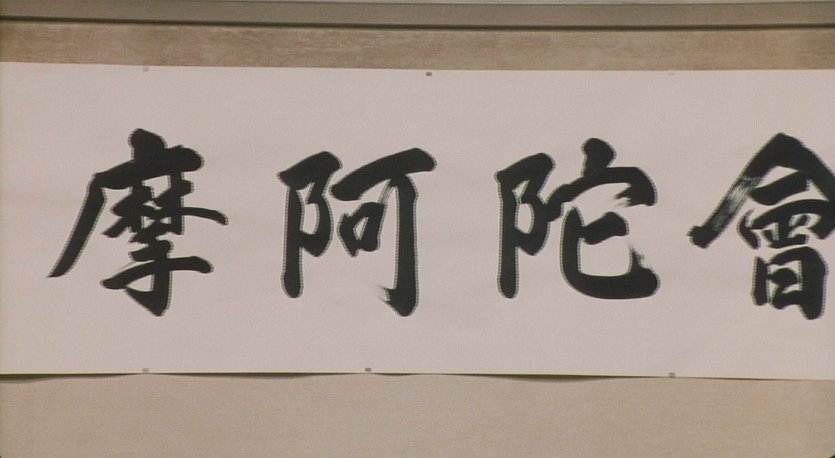 摩阿陀會